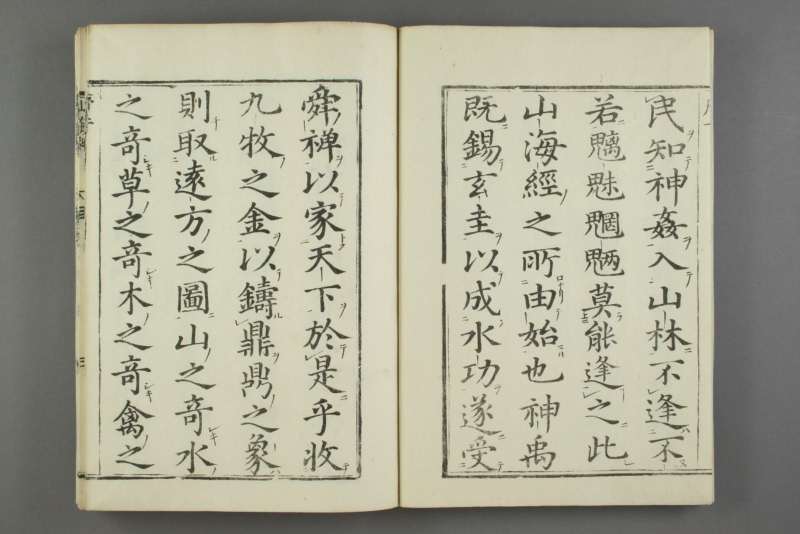 民知神姦入山林不逢不
若魑魅魍魎莫能逢之此
山海經之所由始也神禹
既錫玄圭以成水功遂受
舜禅以家天下於是乎收
九牧之金以鑄鼎鼎之象
則取遠方之圖山之奇水
之奇草之奇木之奇禽之